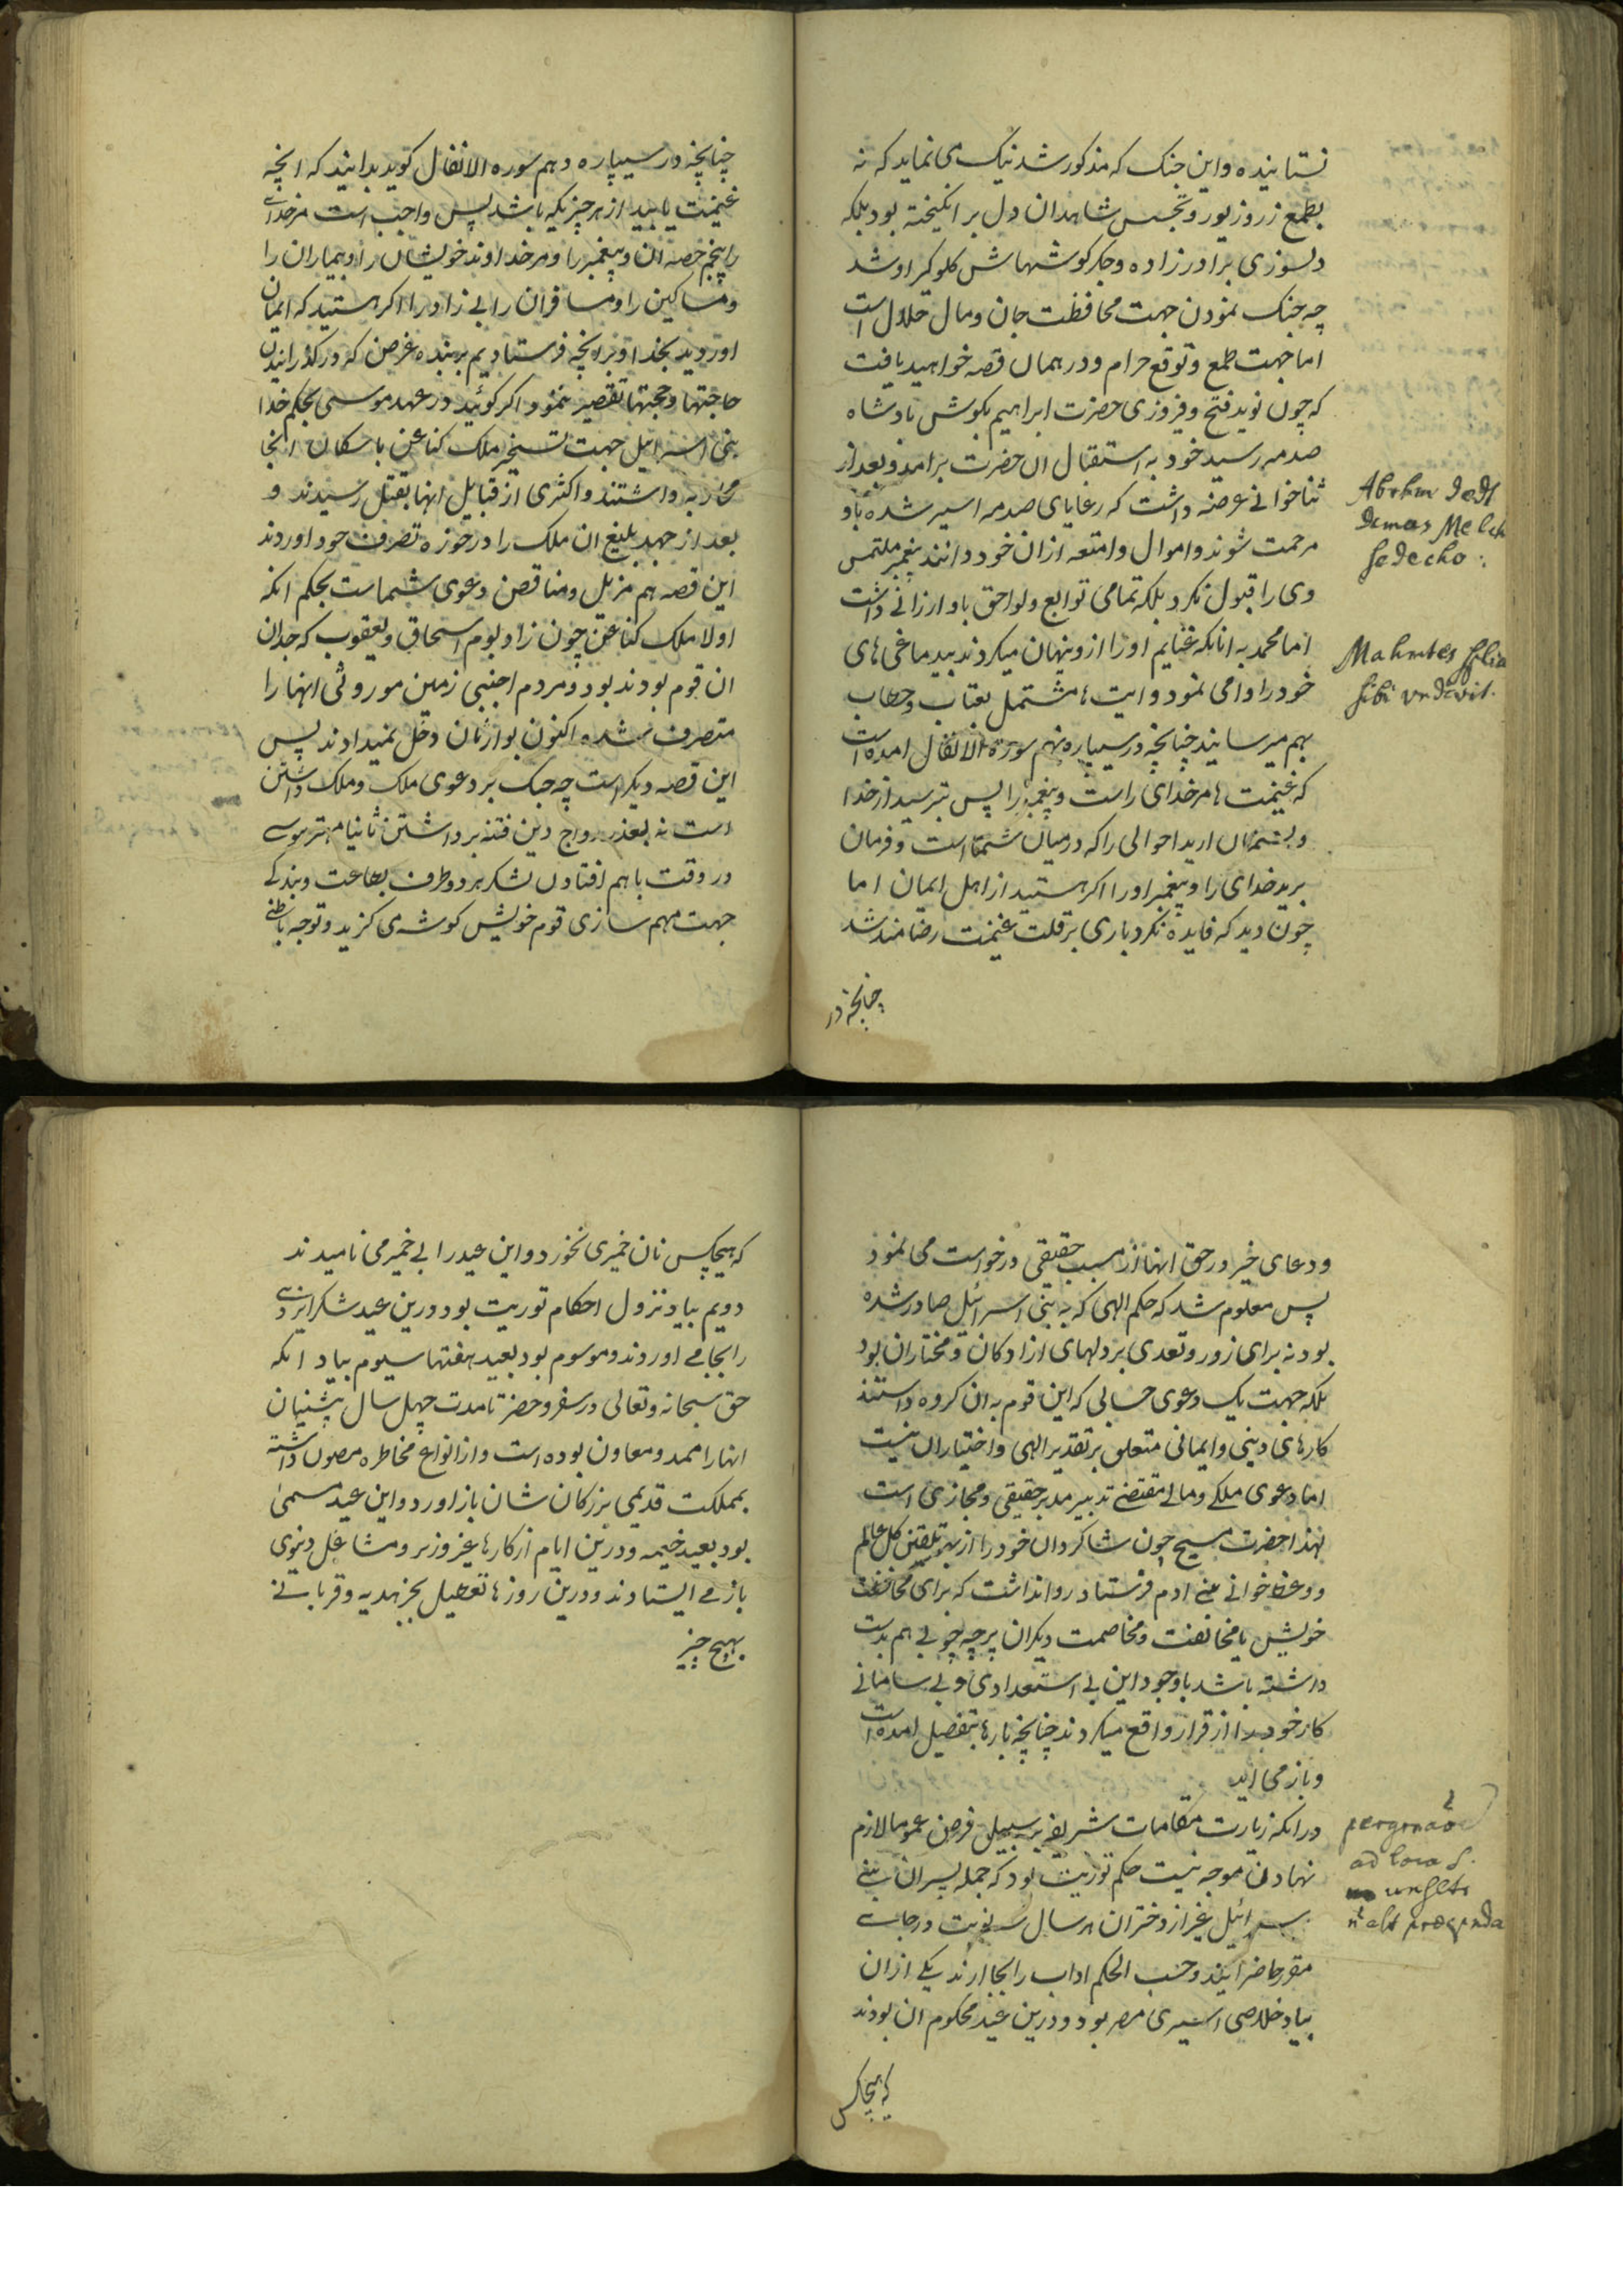 نستاینده و این جنک که مذکور شد نیک می نماید که نه
بطمع زر و زیور و تجسس شاهدان دل بر انکیخته بود بلکه
دلسوزی برادرزاده و جکر کوشهاش کلو کیر او شد
چه جنک نمودن جهت محافظت جان و مال حلال است
اما جهت طمع و توقع حرام و در همان قصه خواهید یافت
که چون نوید فتح و فیروزی حضرت ابراهیم بکوش پادشاه
صدمه رسید خود به استقبال ان حضرت برامد و بعد از
ثنا خوانی عرضه داشت که رعایای صدمه اسیر شده باو
مرحمت شوند و اموال و امتعه ازان خود دانند پیغمبر ملتمس
وی را قبول نکرد بلکه تمامی توابع و لواحق باو ارزانی داشت
اما محمد به انانکه غنایم اورا ازو پنهان میکردند بیدماغی های
خود را وامی نمود و ایت ها مشتمل بعتاب و خطاب
بهم میرسانید چنانچه در سیپاره نهم سوره الانفال امده است
که غنیمت ها مر خدای راست و پیغمبر را پس بترسید از خدا
و بسامان ارید احوالی را که درمیان شماست و فرمان
برید خدای را و پیغمبر اورا اکر هستید از اهل ایمان اما
چون دید که فایده نکرد باری بر قلت غنیمت رضامند شد
چنانچه در
Abrhm dedt
decmas Melch
sedecho :
Mahmtes spolia
sibi vndicvit.
چنانچه در سیپاره دهم سوره الانفال کوید بدانید که انچه
غنیمت یابید از هر چیزیکه باشد پس واجب است مر خدای
را پنجم حصه ان و پیغمبر را و مر خداوند خویشان را و بیماران را
و مساکین را و مسافران را بی زاد را اکر هستید که ایمان
اوردید بخدا و بر انچه فرستادیم بر بنده غرض که در کذرانیدن
حاجتها و حجتها تقصیر ننمود اکر کوئید در عهد موسی بحکم خدا
بنی اسرائیل جهت تسخیر ملک کناعن با سکان انجا
محاربه داشتند و اکثری از قبایل انها بقتل رسیدند و
بعد از جهد بلیغ ان ملک را در حوزه تصرف خود اوردند
این قصه هم مزیل و مناقض دعوی شماست بحکم انکه
اولا ملک کناعن چون زاد بوم اسحاق و یعقوب که جدان
ان قوم بودند بود و مردم اجنبی زمین موروثی انها را
متصرف شده اکنون بوارثان دخل نمیدادند پس
این قصه دیکر است چه جنک بر دعوی ملک و ملک داشتن
است نه بعذر رواج دین فتنه برداشتن ثانیا مهتر موسی
در وقت باهم افتادن لشکر هر دو طرف بطاعت و بندکی
جهت مهم سازی قوم خویش کوشه ی کزید و توجه باطنی
و دعای خیر در حق انها از مسبب حقیقی درخواست می نمود
پس معلوم شد که حکم الهی که به بنی اسرائیل صادر شده
بود نه برای زور و تعدی بر دلهای ازادکان و مختاران بود
بلکه جهت یک دعوی حسابی که این قوم به ان کروه داشتند
کارهای دینی و ایمانی متعلق بر تقدیر الهی و اختیار ان نیست
اما دعوی ملکی و مالی مقتضی تدبیر مدبر حقیقی و مجازی است
لهذا حضرت مسیح چون شاکردان خود را از بهر تلقین کل عالم
و وعظ خوانی بنی ادم فرستاد روا نداشت که برای محافظت
خویش یا مخالفت و مخاصمت دیکران پرچه چوبی هم بدست
داشته باشد با وجود این بی استعدادی و بی سامانی
کار خود را از قرار واقع میکردند چنانچه بارها بتفصیل امده است
و باز می اید
در انکه زیارت مقامات شریفه بر سبیل فرض عموما لازم
نهادن موجه نیست حکم توریت بود که جمله پسران بنی
اسرائیل غیر از دختران هر سال سه نوبت در جای
مقرر حاضر ایند و حسب الحکم اداب را بجا ارند یکی ازان
بیاد خلاصی اسیری مصر بود و درین عید محکوم ان بودند
که هیچکس
pergrnaōe
ad loca s.
unslts
nͭ alt præcpnda
که هیچکس نان خمیری نخورد و این عید را بی خمیر می نامیدند
دویم بیاد نزول احکام توریت بود درین عید شکر ایزدی
را بجا می اوردند و موسوم بود بعید هفتها سیوم بیاد انکه
حق سبحانه و تعالی در سفر و حضر تا مدت چهل سال پشنیان
انها را ممد و معاون بوده است و از انواع مخاطره مصون داشته
بمملکت قدیمی بزرکان شان باز اورد و این عید مسمی
بود بعید خیمه و درین ایام از کارها غیر و زر و مشاغل دنیوی
باز می ایستادند و درین روزها تعطیل بجز هدیه و قربانی
بهیچ چیز